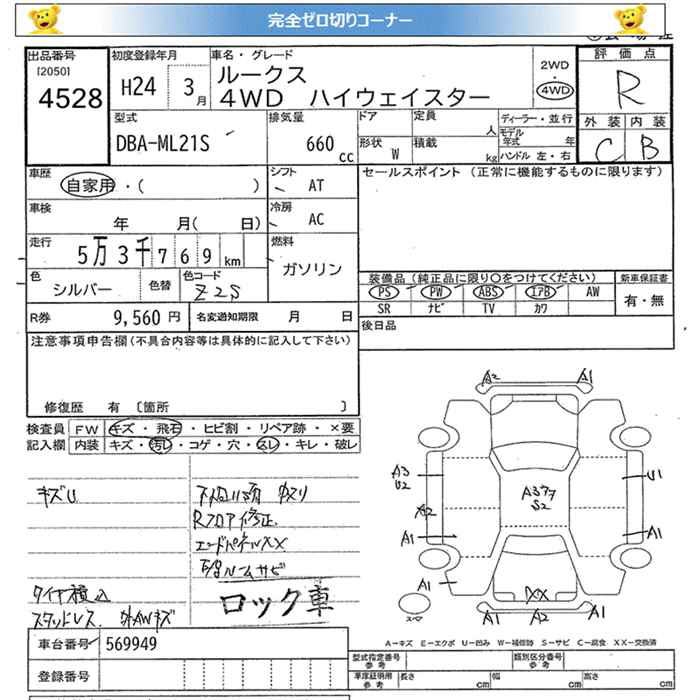 完全ゼロ切りコーナー
出品番号
[2050]
4528
初度登録年月
H24 3月
車名・グレード
ルークス
4WD ハイウェイスター
2WD
・
4WD
評価点
R
外装 内装
C B
型式
DBA-ML21S
排気量
660 cc
ドア
定員
人
形状
W
積載
kg
ディーラー・並行
モデル年式 年
ハンドル 左・右
車歴
自家用・( )
シフト
AT
セールスポイント (正常に機能するものに限ります)
車検
年 月( 日)
冷房
AC
走行
5万3千769km
燃料
ガソリン
色
シルバー
色替
色コード
Z2S
装備品 (純正品に限り○をつけてください)
新車保証書
PS PW ABS エアB AW
有・無
SR ナビ TV カワ
R券 9,560円
名変通知期限 月 日
後日品
注意事項申告欄(不具合内容等は具体的に記入して下さい)
修復歴 有 〔箇所 〕
検査員
記入欄
FW キズ・飛石・ヒビ割・リペア跡・×要
内装 キズ・汚レ・コゲ・穴・スレ・キレ・破レ
キズU
Rフロア修正
エンドパネルXX
ルームサビ
ロック車
タイヤ積込
スタッドレス 外AWキズ
A2 A1
A3
U2
U1
A3
S2
A2
A1
A1
A1
XX
スペア
A1 A2 A1
A-キズ E-エクボ U-凹み W-補修跡 S-サビ C-腐食 XX-交換済
車台番号 569949
登録番号
型式指定番号
参考
類別区分番号
参考
車庫証明用
参考
長さ cm 幅 cm 高さ cm